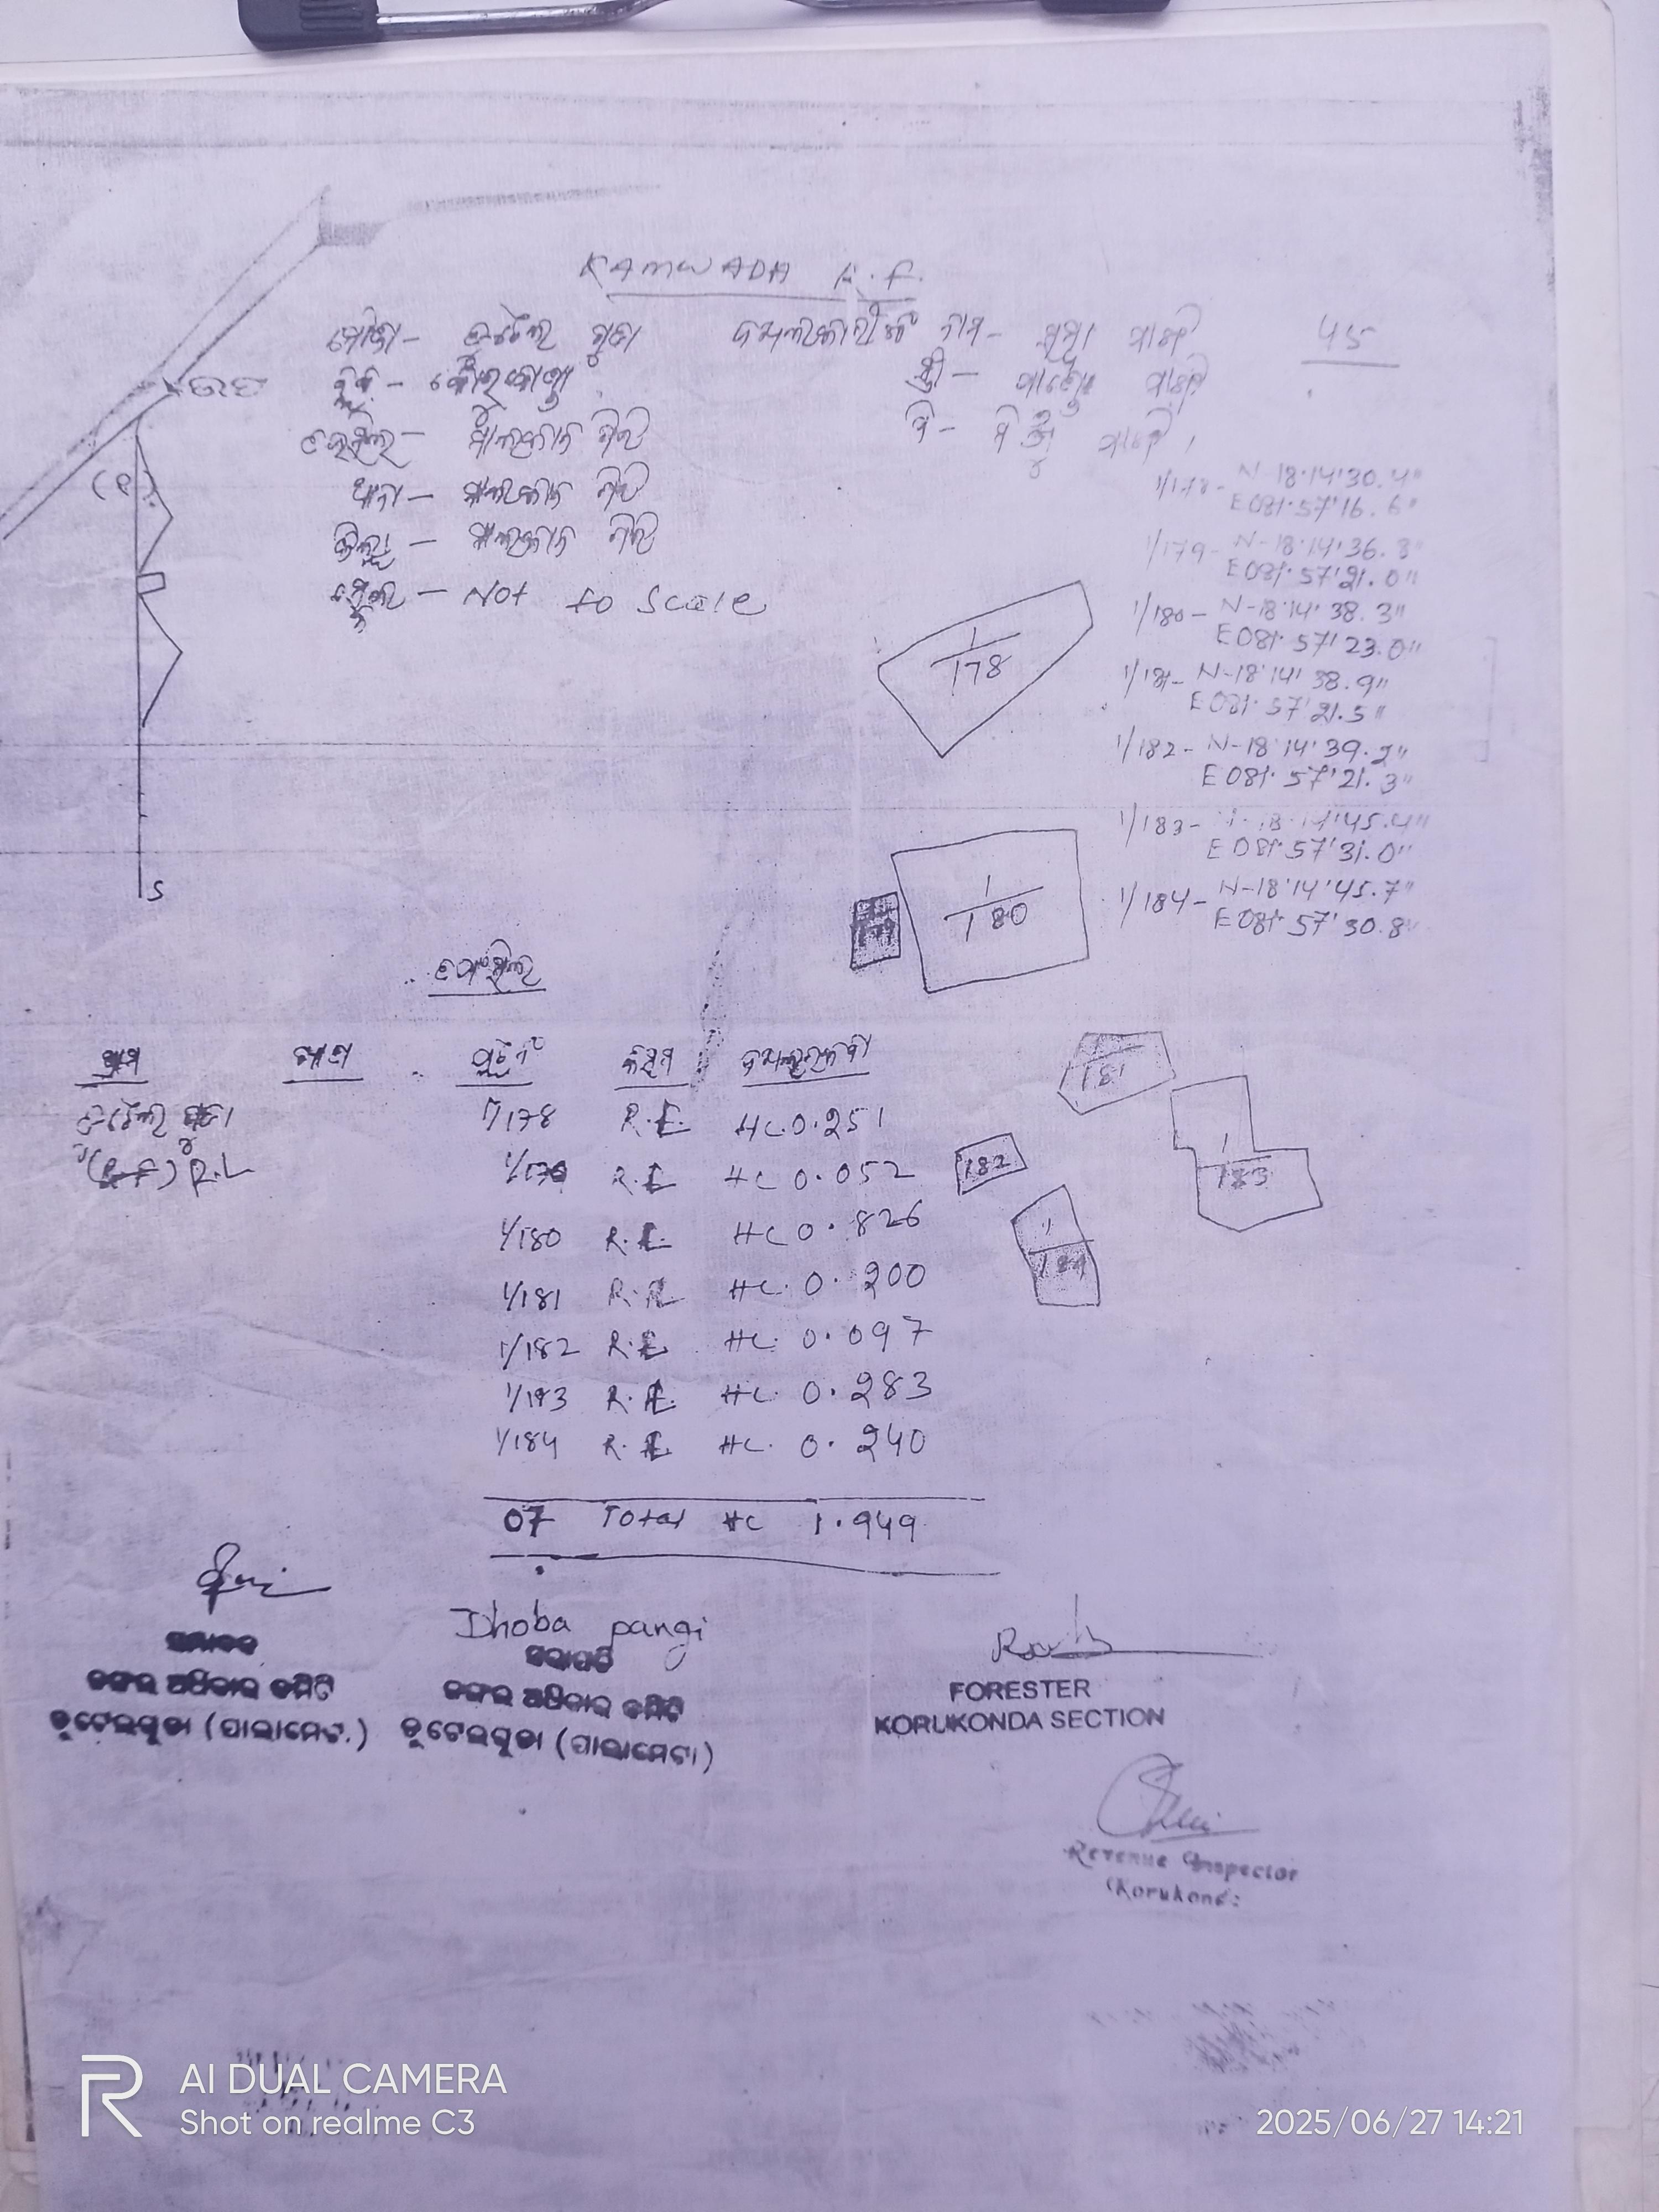 KAMWADA R.F.
ମୌଜା - ଚୁଟେଲ ଗୁଡା ଦଖଲକାରୀଙ୍କ ନାମ - ସୁମା ପାଙ୍ଗି 45
ବ୍ଲକ - କୋରୁକୋଣ୍ଡା ସ୍ତ୍ରୀ - ପାଙ୍ଗି
ତହସିଲ - ମାଲକାନ ଗିରି ପି - ପାଙ୍ଗି
ଥାନା - ମାଲକାନ ଗିରି
ଜିଲ୍ଲା - ମାଲକାନ ଗିରି
ସ୍କେଲ - Not to Scale
S
1/178 - N-18°14'30.4"
E081°57'16.6"
1/179 - N-18°14'36.8"
E081°57'21.0"
1/180 - N-18°14'38.3"
E081°57'23.0"
1/181 - N-18°14'38.9"
E081°57'21.5"
1/182 - N-18°14'39.2"
E081°57'21.3"
1/183 - N-18°14'45.4"
E081°57'31.0"
1/184 - N-18°14'45.7"
E081°57'30.8"
1/178
1/180
181
182
1/183
1/184
ତଫସିଲ
ଗ୍ରାମ ଖାତା ପ୍ଲଟ ନଂ କିସମ ଦଖଲ ରକବା
ଚୁଟେଲ ଗୁଡା 1/178 R.L HC.0.251
(R.F) R.L 1/179 R.L HC 0.052
1/180 R.L. HC 0.826
1/181 R.L HC. 0.200
1/182 R.L HC. 0.097
1/183 R.L. HC. 0.283
1/184 R.L HC. 0.240
07 Total HC 1.949
Dhoba pangi
ସମ୍ପାଦକ
ଜଙ୍ଗଲ ଅଧିକାର କମିଟି
ଚୁଟେଲଗୁଡା (ପାଲାମେଟା)
ସଭାପତି
ଜଙ୍ଗଲ ଅଧିକାର କମିଟି
ଚୁଟେଲଗୁଡା (ପାଲାମେଟା)
FORESTER
KORUKONDA SECTION
Revenue Inspector
(Korukond:
AI DUAL CAMERA
Shot on realme C3
2025/06/27 14:21